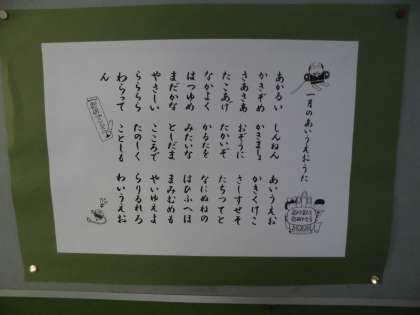 一月のあいうえおうた
あかるい しんねん あいうえお
かきぞめ かきましょ かきくけこ
さあさあ おぞうに さしすせそ
たこあげ たかいぞ たちつてと
なかよく かるたを なにぬねの
はつゆめ みたいな はひふへほ
まだかな としだま まみむめも
やさしい こころで やいゆえよ
らららら たのしく らりるれろ
わらって ことしも わいうえお
ん